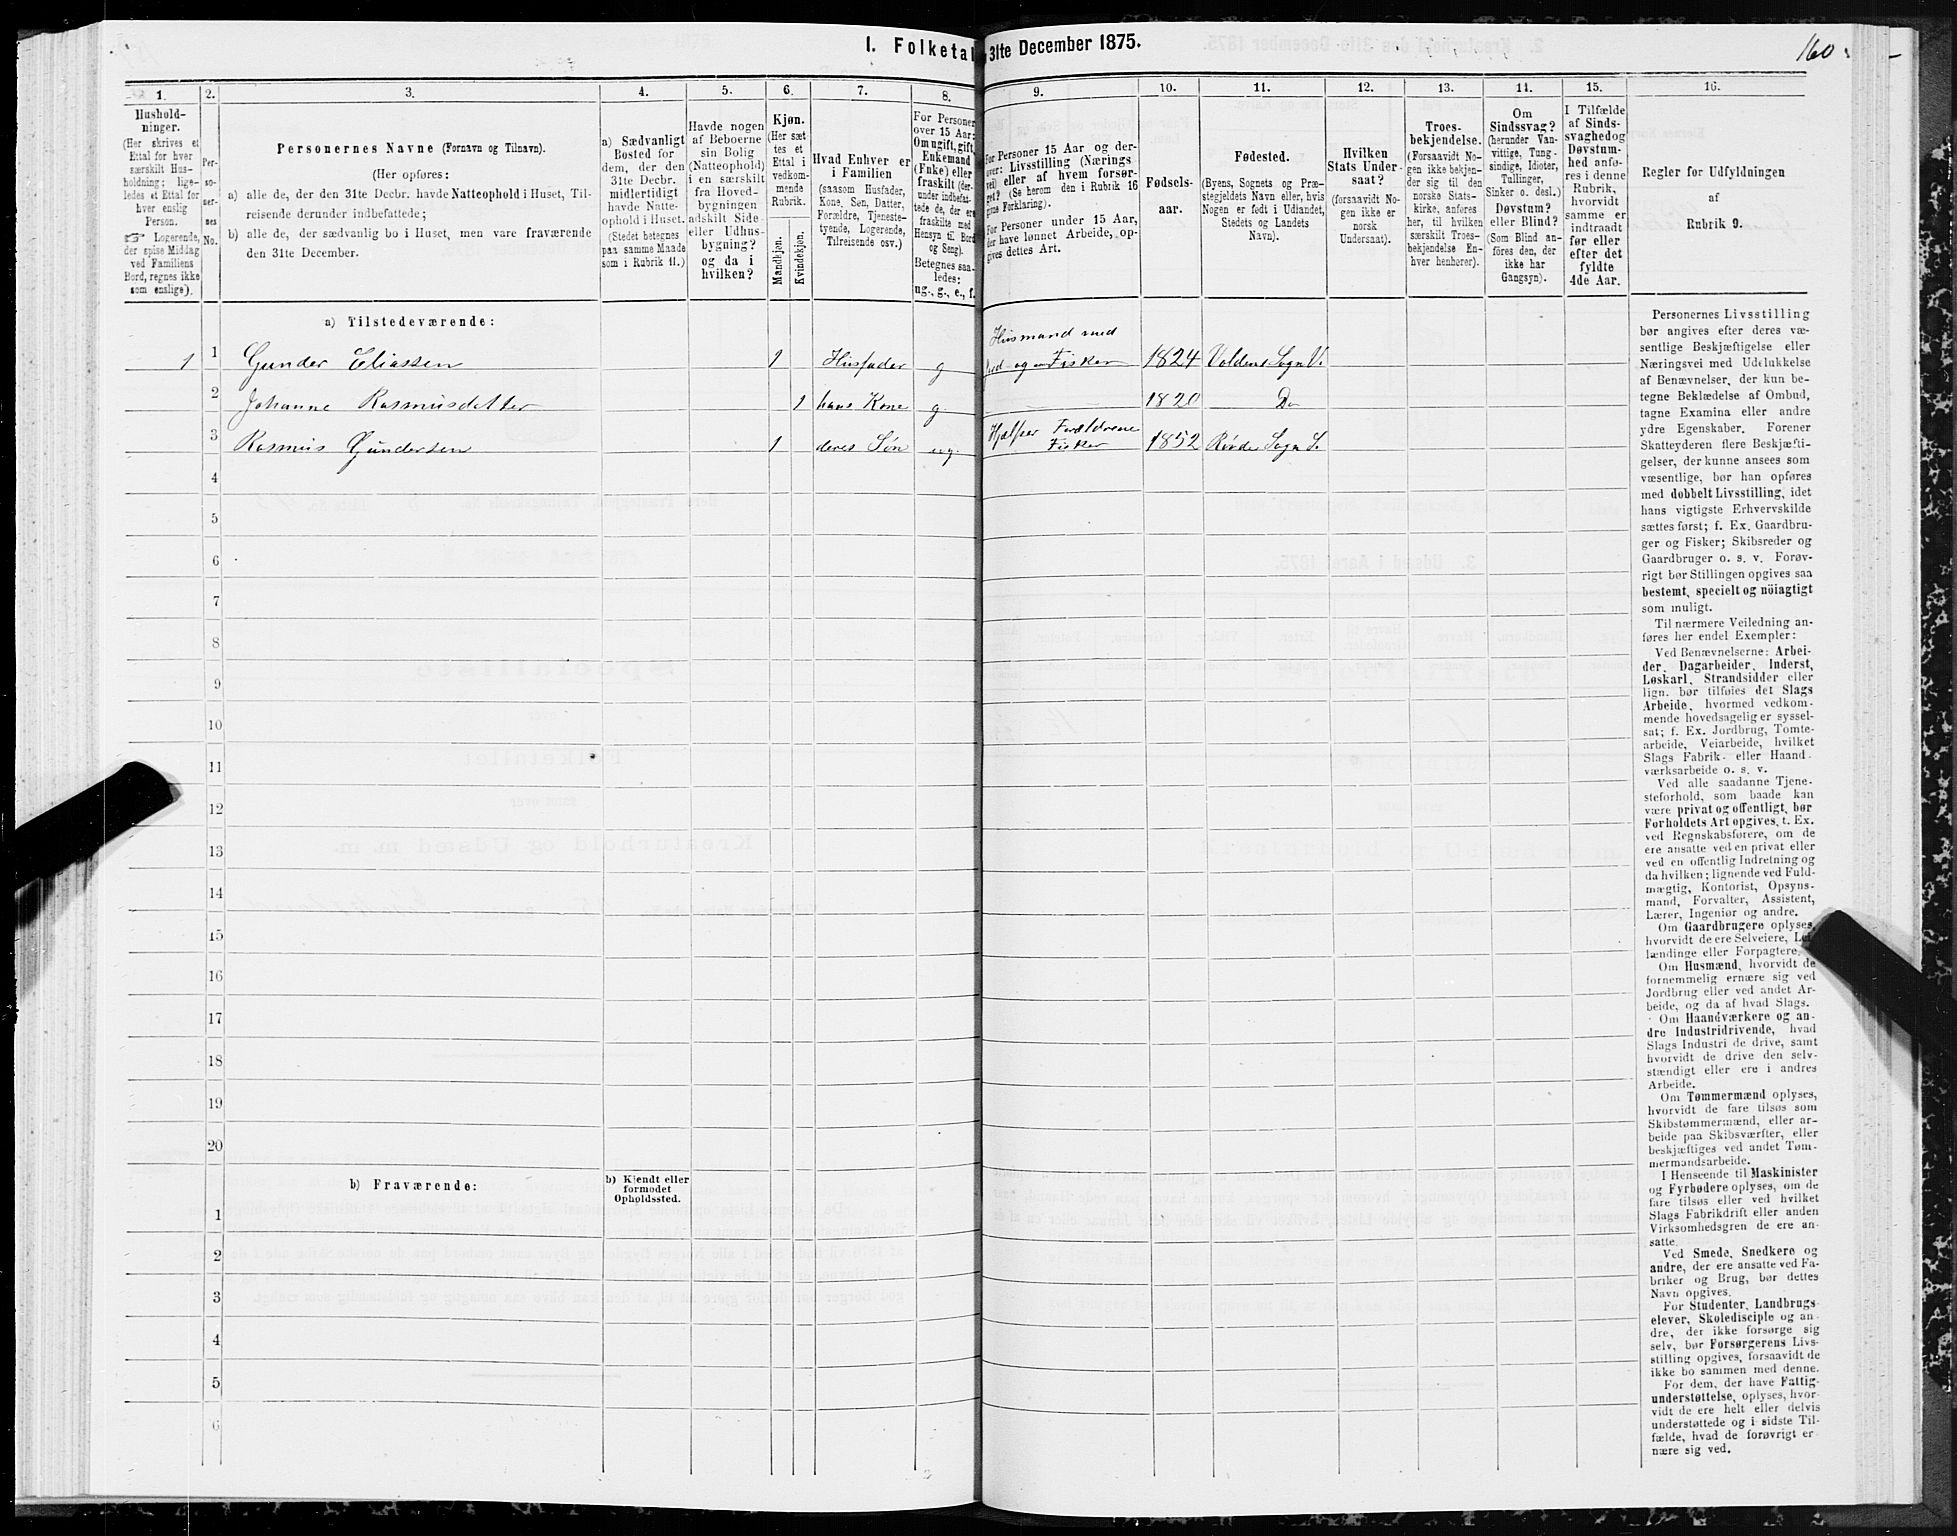 I. Folketal
31te December 1875.
160
1.
2.
3.
4.
5.
6.
7.
8.
9.
10.
11.
12.
13.
14.
15.
16.
Hushold-
ninger.
(Her skrives et
Ettal for hver
særskilt Hus-
holdning; lige-
ledes et Ettal for
hver enslig
Person.
☞ Logerende,
der spise Middag
ved Familiens
Bord, regnes ikke
som enslige).
Per-
so-
ner-
nes
No.
Personernes Navne (Fornavn og Tilnavn).
(Her opføres:
a) alle de, der den 31te Decbr. havde Natteophold i Huset, Til-
reisende derunder indbefattede;
b) alle de, der sædvanlig bo i Huset, men vare fraværende
den 31te December.
a) Sædvanligt
Bosted for
dem, der den
31te Decbr.
midlertidigt
havde Natte-
ophold i Huset.
(Stedet betegnes
paa samme Maade
som i Rubrik 11.)
Havde nogen
af Beboerne
sin Bolig
(Natteophold)
i en særskilt
fra Hoved-
bygningen
adskilt Side-
eller Udhus-
bygning?
og da i
hvilken?
Kjøn.
(Her sæt-
tes et
Ettal i
vedkom-
mende
Rubrik.
Mandkjøn.
Kvindekjøn.
Hvad Enhver er
i Familien
(saasom Husfader,
Kone, Søn, Datter,
Forældre, Tjeneste-
tyende, Logerende,
Tilreisende osv.)
For Personer
over 15 Aar:
Om ugift, gift,
Enkemand
(Enke) eller
fraskilt (der-
under indbefat-
tede de, der ere
fraskilte med
Hensyn til Bord
og Seng).
Betegnes saa-
ledes:
ug., g., e., f.
For Personer 15 Aar og der-
over: Livsstilling (Nærings-
vei) eller af hvem forsør-
get? (Se herom den i Rubrik 16
givne Forklaring).
For Personer under 15 Aar,
der have lønnet Arbeide, op-
gives dettes Art.
Fødsels-
aar.
Fødested.
(Byens, Sognets og Præ-
stegjeldets Navn eller, hvis
Nogen er født i Udlandet,
Stedets og Landets
Navn).
Hvilken
Stats Under-
saat?
(forsaavidt No-
gen ikke er
norsk
Undersaat).
Troes-
bekjendelse.
(Forsaavidt No-
gen ikke bekjen-
der sig til den
norske Stats-
kirke, anføres
her, til hvilken
særskilt Troes-
bekjendelse En-
hver henhører).
Om
Sindssvag?
(herunder Van-
vittige, Tung-
sindige, Idioter,
Tullinger,
Sinker o. desl.)
Døvstum?
eller Blind?
(Som Blind an-
føres den, der
ikke har
Gangsyn).
I Tilfælde
af Sinds-
svaghed og
Døvstum-
hed anfø-
res i denne
Rubrik,
hvorvidt
samme er
indtraadt
før eller
efter det
fyldte
4de Aar.
Regler for Udfyldningen
af
Rubrik 9.
a) Tilstedeværende:
1 1 Gunder Eliassen 1 Husfader g Husmand med
Jord og Fisker 1824 Voldens Sogn V.
2 Johanne Rasmusdatter 1 hans Kone g. 1820 Do
3 Rasmus Gundersen 1 deres Søn ug. Hjælper Forældrene
Fisker 1852 Sogn
4
5
6
7
8
9
10
11
12
13
14
15
16
17
18
19
20
b) Fraværende:
b) Kjendt eller
formodet
Opholdssted.
1
2
3
4
5
6
Personernes Livsstilling
bør angives efter deres væ-
sentlige Beskjæftigelse eller
Næringsvei med Udelukkelse
af Benævnelser, der kun be-
tegne Beklædelse af Ombud,
tagne Examina eller andre
ydre Egenskaber. Forener
Skatteyderen flere Beskjæfti-
gelser, der kunne ansees som
væsentlige, bør han opføres
med dobbelt Livsstilling, idet
hans vigtigste Erhvervskilde
sættes først; f. Ex. Gaardbru-
ger og Fisker; Skibsreder og
Gaardbruger o. s. v. Forøv-
rigt bør Stillingen opgives saa
bestemt, specielt og nöiagtigt
som muligt.
Til nærmere Veiledning an-
føres her endel Exempler:
Ved Benævnelserne: Arbei-
der, Dagarbeider, Inderst,
Løskarl, Strandsidder eller
lign. bør tilføies det Slags
Arbeide, hvormed vedkom-
mende hovedsagelig er syssel-
sat; f. Ex. Jordbrug, Tomte-
arbeide, Veiarbeide, hvilket
Slags Fabrik- eller Haand-
værksarbeide o. s. v.
Ved alle saadanne Tjene-
steforhold, som baade kan
være privat og offentligt, bør
Forholdets Art opgives, t. Ex.
ved Regnskabsførere, om de
ere ansatte ved en privat eller
ved en offentlig Indretning og
da hvilken; lignende ved Fuld-
mægtig, Kontorist, Opsyns-
mand, Forvalter, Assistent,
Lærer, Ingeniør og andre.
Om Gaardbrugere oplyses,
hvorvidt de ere Selveiere, Lei-
lændinge eller Forpagtere.
Om Husmænd, hvorvidt de
fornemmelig ernære sig ved
Jordbrug eller ved andet Ar-
beide, og da af hvad Slags.
Om Haandværkere og an-
dre Industridrivende, hvad
Slags Industri de drive, samt
hvorvidt de drive den selv-
stændigt eller ere i andres
Arbeide.
Om Tømmermænd oplyses,
hvorvidt de fare tilsøs som
Skibstømmermænd, eller ar-
beide paa Skibsværfter, eller
beskjæftiges ved andet Tøm-
mermandsarbeide.
I Henseende til Maskinister
og Fyrbødere oplyses, om de
fare tilsøs eller ved hvilket
Slags Fabrikdrift eller anden
Virksomhedsgren de ere an-
satte.
Ved Smede, Snedkere og
andre, der ere ansatte ved Fa-
briker og Brug, bør dettes
Navn opgives.
For Studenter, Landbrugs-
elever, Skoledisciple og an-
dre, der ikke forsørge sig
selv, bør Forsørgerens Livs-
stilling opgives, forsaavidt de
ikke bo sammen med denne.
For dem, der have Fattig-
understøttelse, oplyses, hvor-
vidt de ere helt eller delvis
understøttede og i sidste Til-
fælde, hvad de forøvrigt er-
nære sig ved.